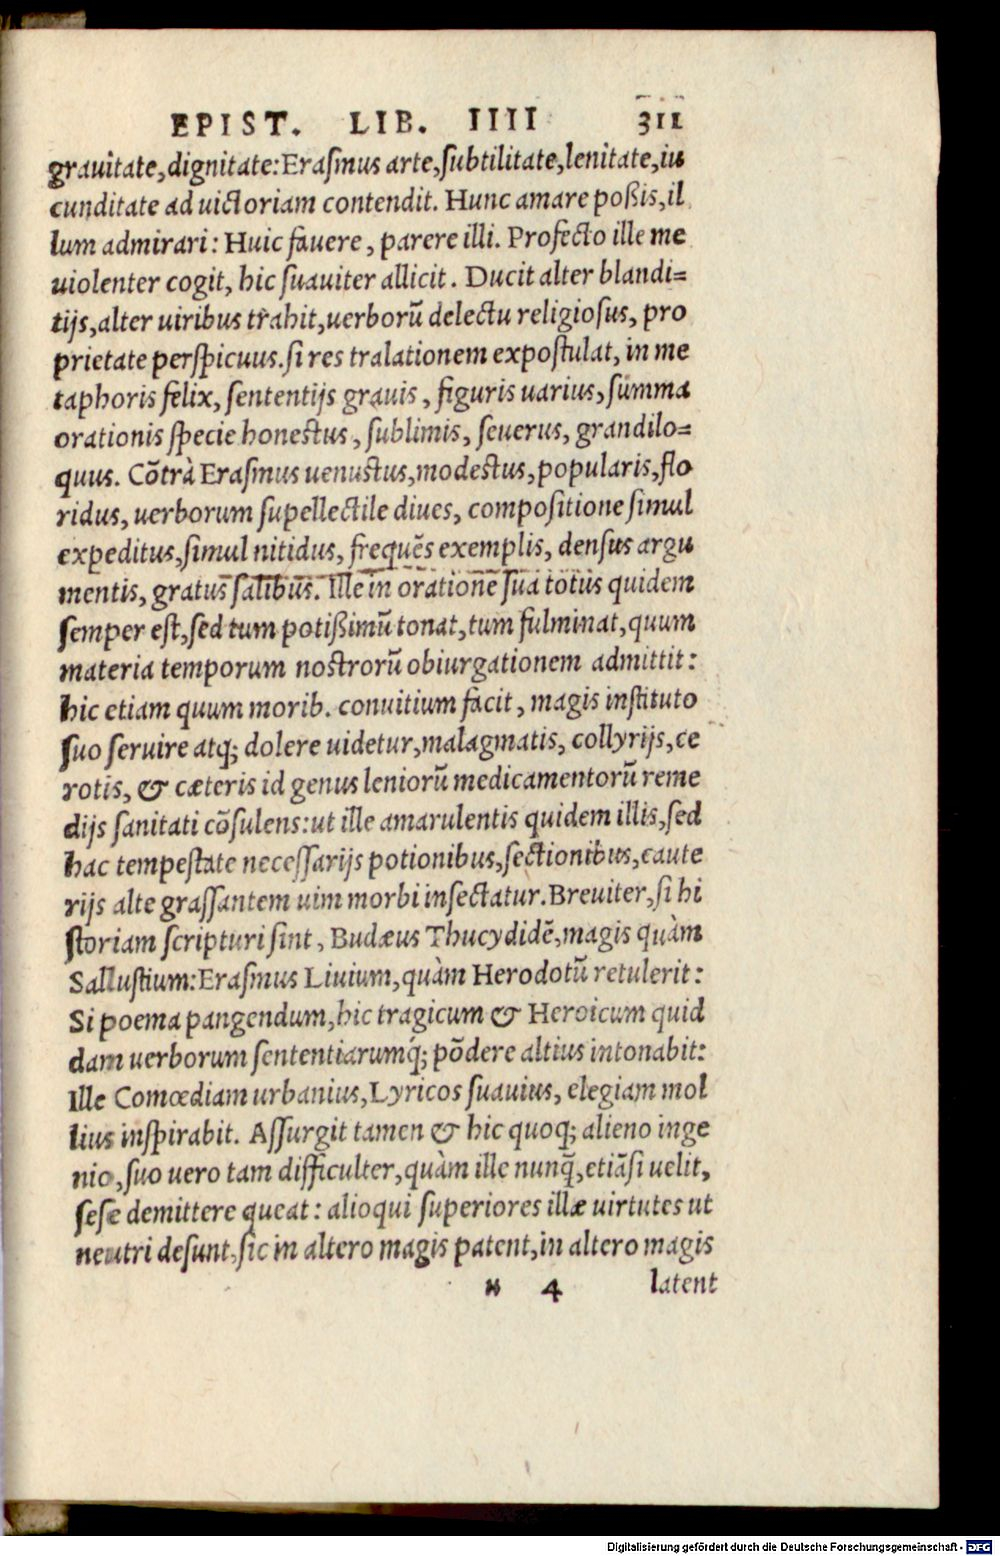 EPIST. LIB. IIII 311
grauitate, dignitate: Eraſmus arte, ſubtilitate, lenitate, iu
cunditate ad uictoriam contendit. Hunc amare poßis, il
lum admirari: Huic fauere, parere illi. Profecto ille me
uiolenter cogit, hic ſuauiter allicit. Ducit alter blandi=
tijs, alter uiribus trahit, uerborū delectu religioſus, pro
prietate perſpicuus. ſi res tralationem expoſtulat, in me
taphoris felix, ſententijs grauis, figuris uarius, ſumma
orationis ſpecie honeſtus, ſublimis, ſeuerus, grandilo=
quus. Cōtrà Eraſmus uenuſtus, modeſtus, popularis, flo
ridus, uerborum ſupellectile diues, compoſitione ſimul
expeditus, ſimul nitidus, frequēs exemplis, denſus argu
mentis, gratus ſalibus. Ille in oratione ſua totus quidem
ſemper eſt, ſed tum potißimū tonat, tum fulminat, quum
materia temporum noſtrorū obiurgationem admittit:
hic etiam quum morib. conuitium facit, magis inſtituto
ſuo ſeruire atq; dolere uidetur, malagmatis, collyrijs, ce
rotis, & cæteris id genus leniorū medicamentorū reme
dijs ſanitati cōſulens: ut ille amarulentis quidem illis, ſed
hac tempeſtate neceſſarijs potionibus, ſectionibus, caute
rijs alte graſſantem uim morbi inſectatur. Breuiter, ſi hi
ſtoriam ſcripturi ſint, Budæus Thucydidē, magis quàm
Salluſtium: Eraſmus Liuium, quàm Herodotū retulerit:
Si poema pangendum, hic tragicum & Heroicum quid
dam uerborum ſententiarumq́; pōdere altius intonabit:
Ille Comœdiam urbanius, Lyricos ſuauius, elegiam mol
lius inſpirabit. Aſſurgit tamen & hic quoq; alieno inge
nio, ſuo uero tam difficulter, quàm ille nunq̄, etiāſi uelit,
ſeſe demittere queat: alioqui ſuperiores illæ uirtutes ut
neutri deſunt, ſic in altero magis patent, in altero magis
x 4 latent
Digitalisierung gefördert durch die Deutsche Forschungsgemeinschaft - DFG